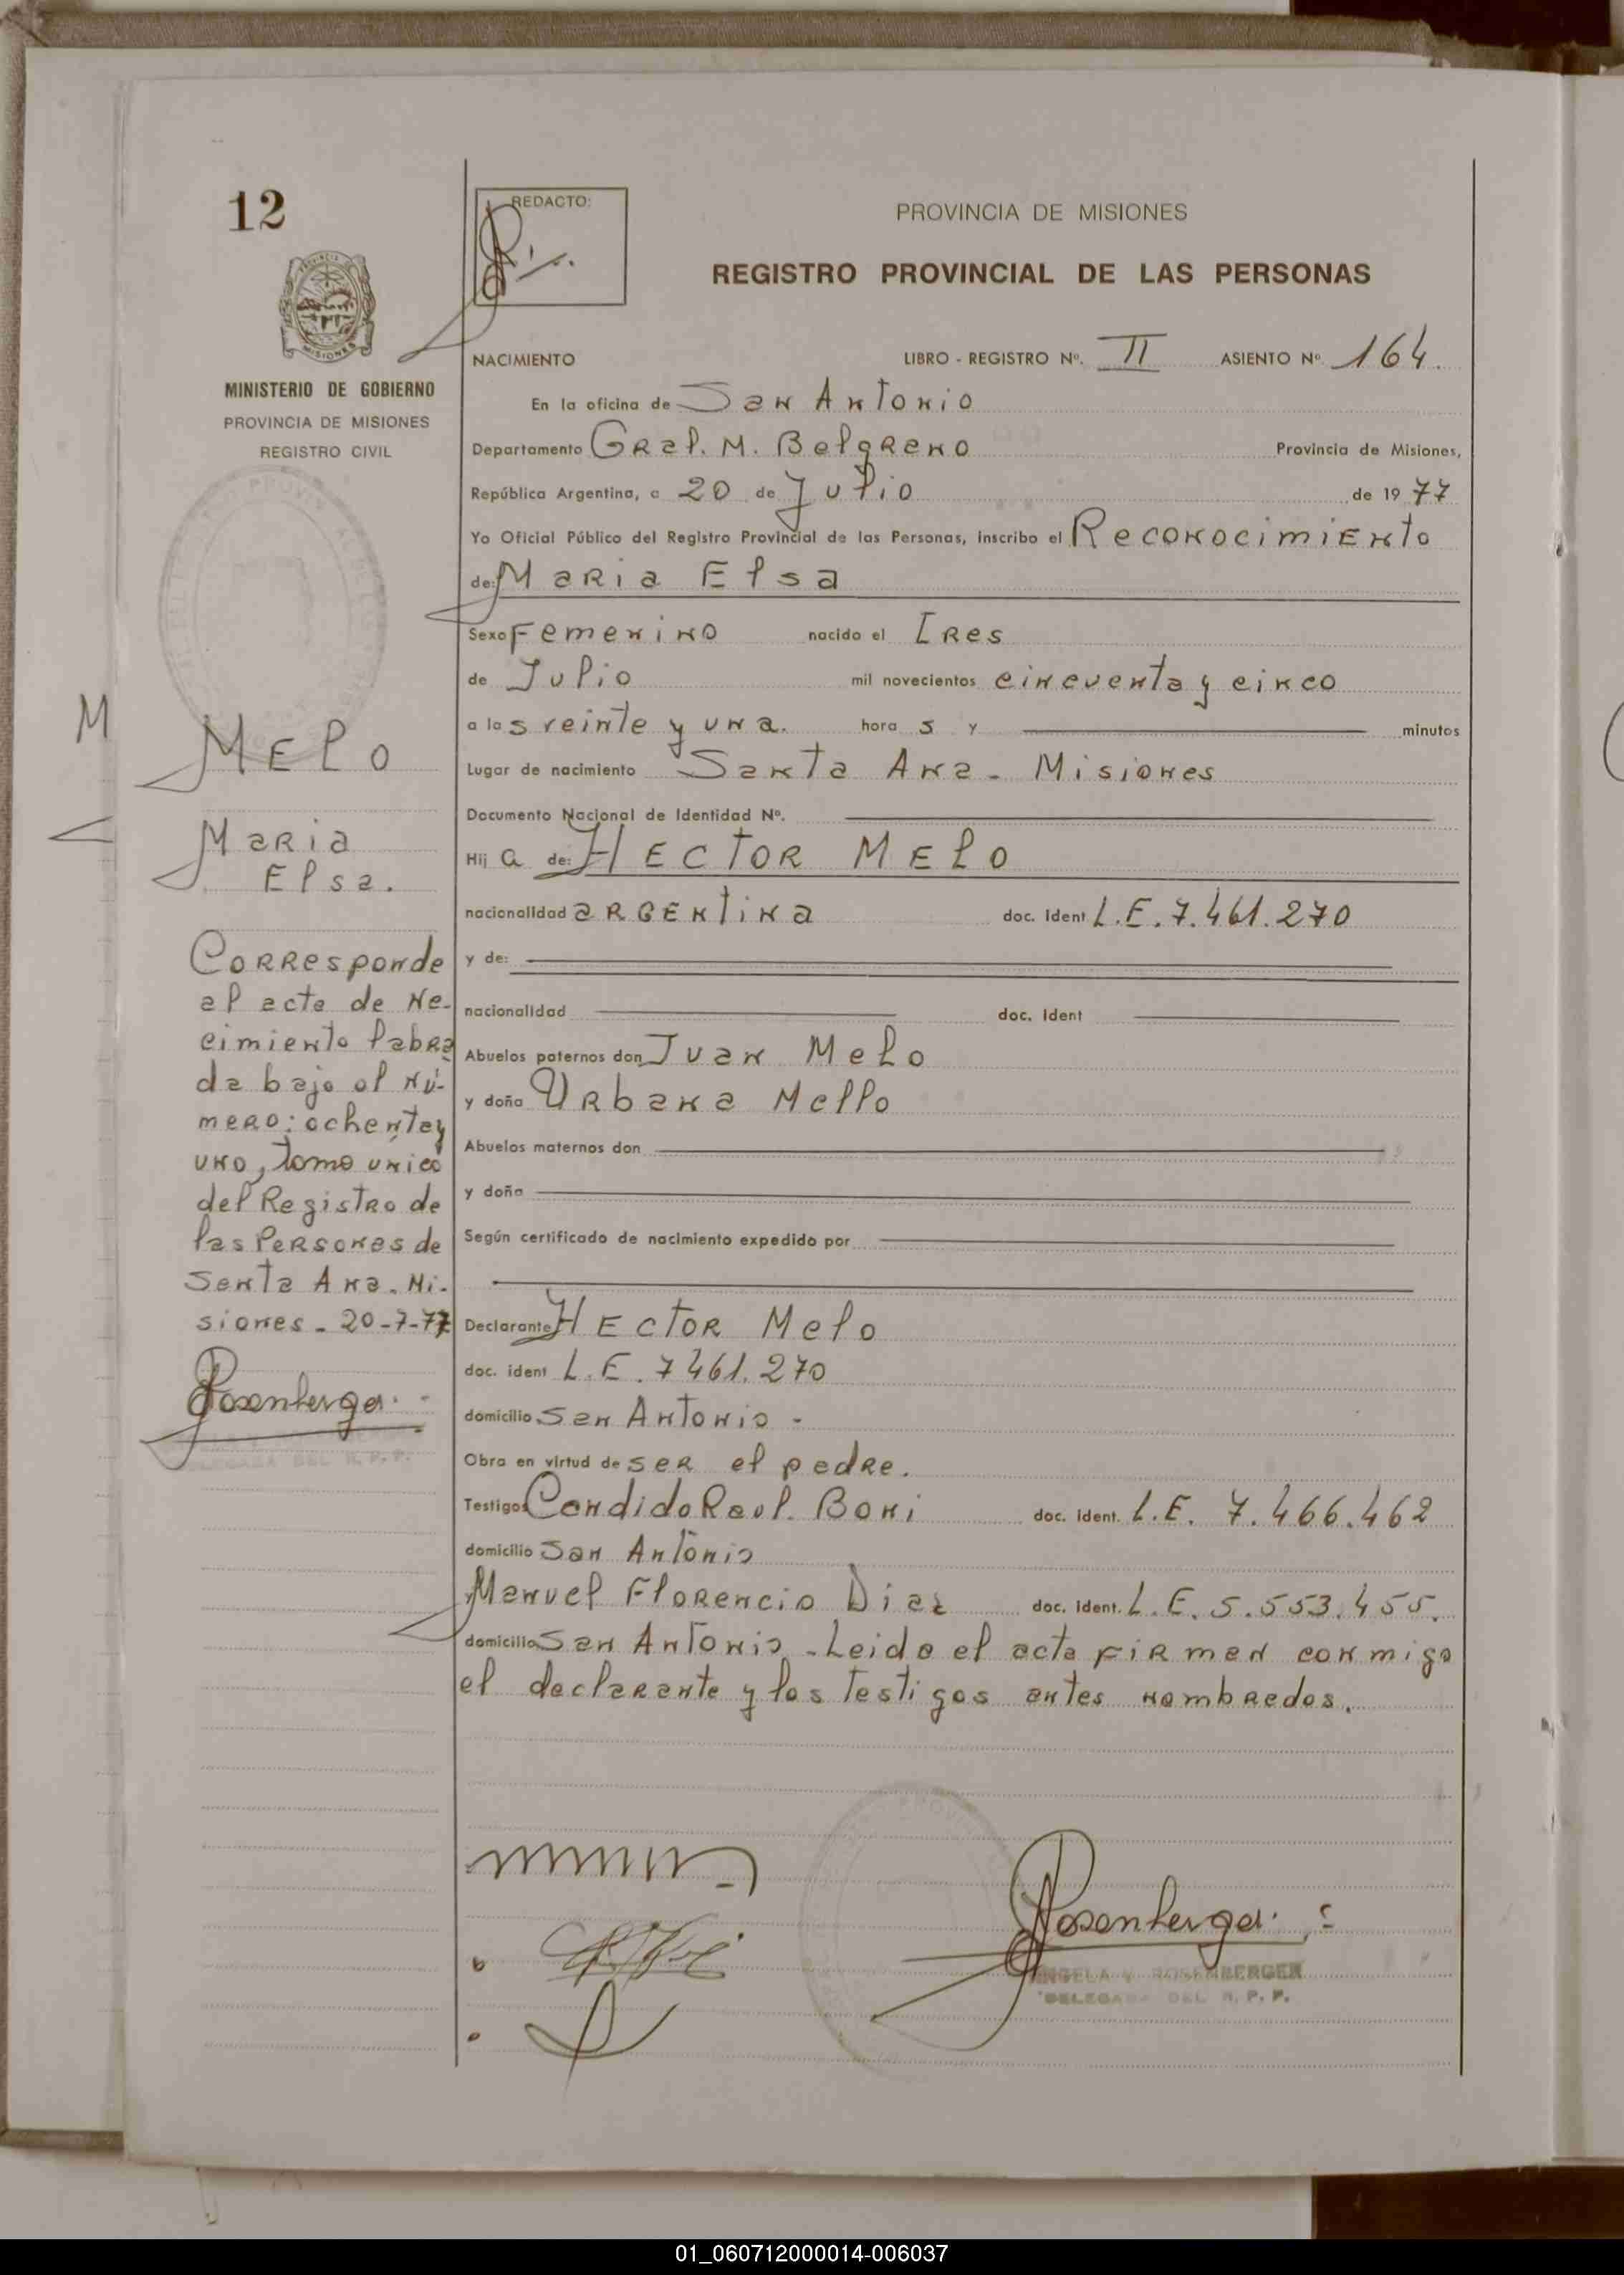 12
REDACTO:
PROVINCIA DE MISIONES
REGISTRO PROVINCIAL DE LAS PERSONAS
MISIONES
MINISTERIO DE GOBIERNO
PROVINCIA DE MISIONES
REGISTRO CIVIL
NACIMIENTO LIBRO - REGISTRO Nº. II ASIENTO Nº. 164.
En la oficina de San Antonio
Departamento Gral. M. Belgrano Provincia de Misiones,
República Argentina, a 20 de Julio de 1977
Yo Oficial Público del Registro Provincial de las Personas, inscribo el Reconocimiento
de: Maria Elsa
Sexo Femenino nacido el Tres
de Julio mil novecientos cincuenta y cinco
a las veinte y una. hora s y minutos
Lugar de nacimiento Santa Ana - Misiones
Documento Nacional de Identidad Nº.
Hij a de: HECTOR MELO
nacionalidad argentina doc. Ident L.E. 7.461.270
y de:
nacionalidad doc. Ident
Abuelos paternos don Juan Melo
y doña Urbana Mello
Abuelos maternos don
y doña
Según certificado de nacimiento expedido por
Declarante HECTOR Melo
doc. ident L.E. 7461.270
domicilio San Antonio -
Obra en virtud de ser el padre.
Testigos Candido Raul. Boni doc. ident. L.E. 7.466.462
domicilio San Antonio
Manuel Florencio Diaz doc. ident. L.E. 5.553.455.
domicilio San Antonio - Leida el acta firman conmigo
el declarante y los testigos antes nombrados.
M
Melo
Maria
Elsa.
Corresponde
al acta de Na-
cimiento labra
da bajo el nú-
mero: ochenta y
uno, tomo unico
del Registro de
las Personas de
Santa Ana. Mi-
siones - 20-7-77
Rosenberger.
DELEGADA DEL R. P. P.
Rosenberger.
ANGELA V. ROSENBERGER
DELEGADA DEL R. P. P.
01_060712000014-006037